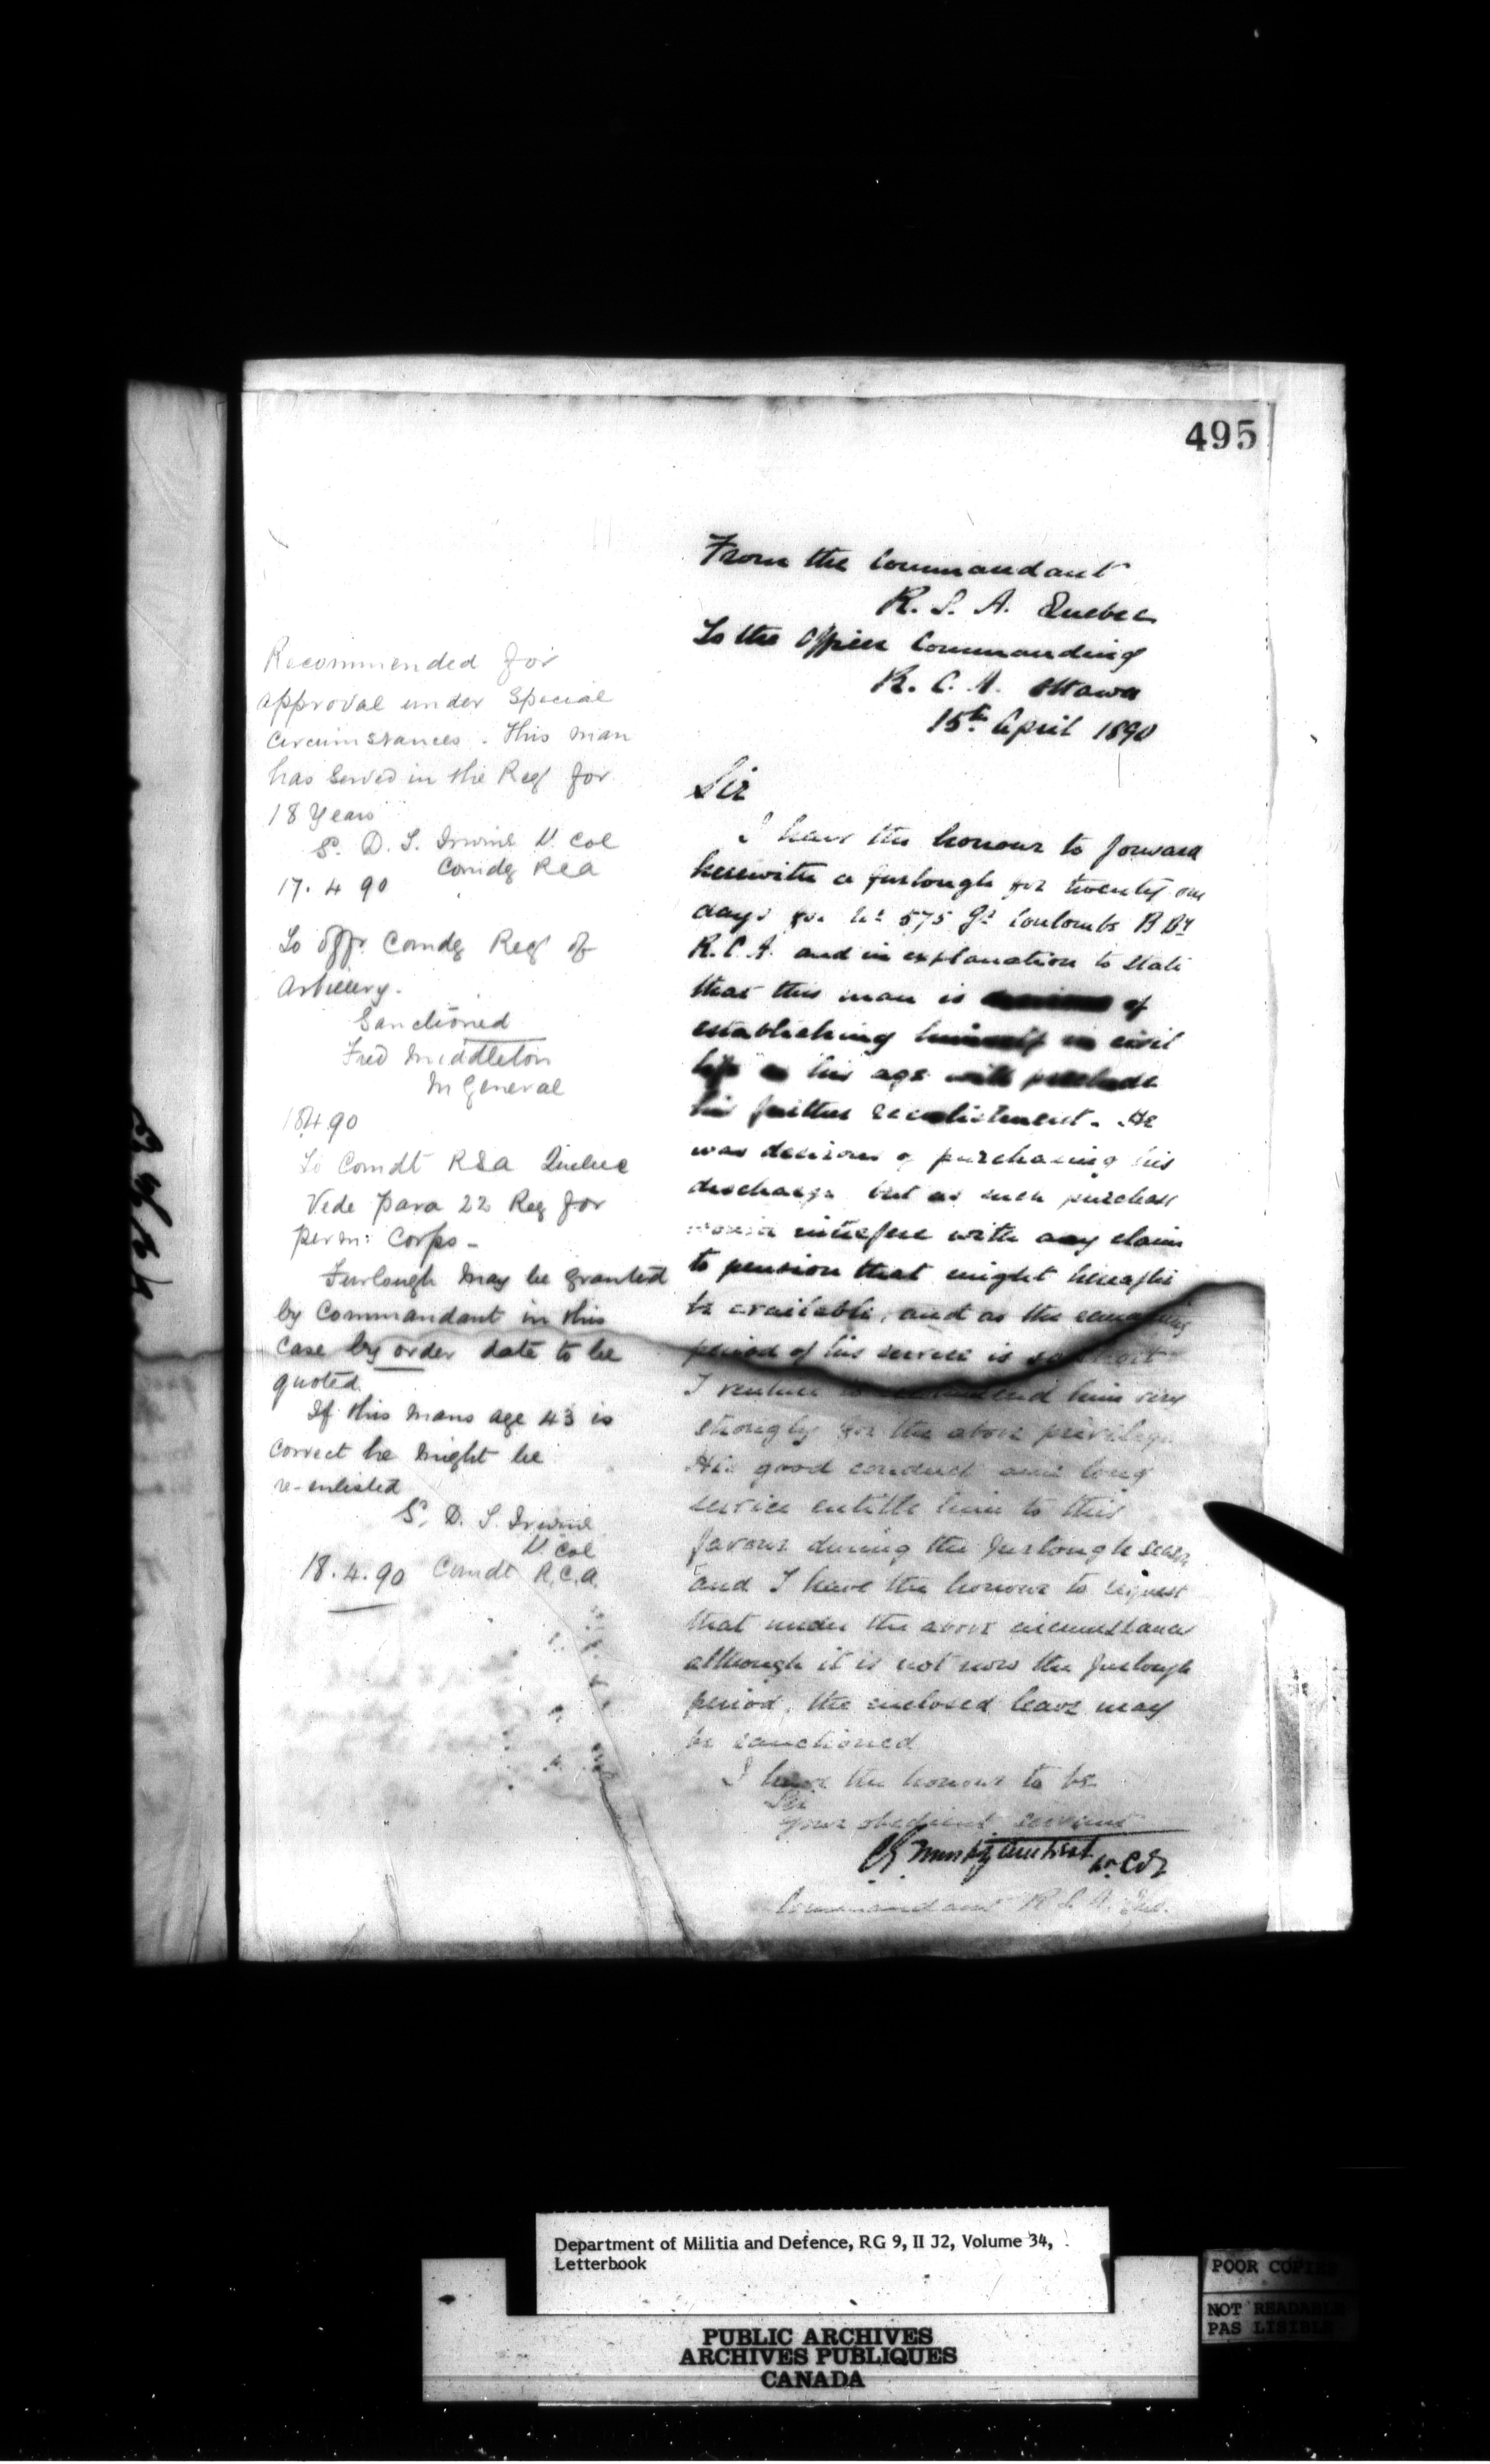 495
From the Commandant
R. S. A. Quebec
To the Officer Commanding
R. C. A. Ottawa
15th April 1890
Sir
I have the honour to forward
herewith a furlough for twenty one
days for No 575 Gr Coulombe B By
R.C.A. and in explanation to state
that this man is of
establishing himself in civil
life as his age will preclude
his further reenlistment. He
was desirous of purchasing his
discharge but as such purchase
would interfere with any claim
to pension that might hereafter
be available, and as the remaining
period of his service is so short
I venture to recommend him very
strongly for the above privilege
His good conduct and long
service entitle him to this
favour during the furlough season
and I have the honour to request
that under the above circumstances
although it is not now the furlough
period, the enclosed leave may
be sanctioned
I have the honour to be
Sir
Your obedient servant
Commandant R. S. A. Que.
Recommended for
approval under Special
Circumstances. This man
has served in the Reg for
18 Years
D. T. Irwin Lt Col
Comdg RCA
17. 4 90
To Offr Comdg Reg of
Artillery.
Sanctioned
Fred Middleton
M General
18.4.90
To Comdt RSA Quebec
Vide Para 22 Reg for
Perm: Corps -
Furlough may be granted
by Commandant in this
case by order date to be
quoted.
If this mans age 43 is
correct he might be
re-enlisted
D. T. Irwin
Lt Col
18.4.90 Comdt R.C.A.
Department of Militia and Defence, RG 9, II J2, Volume 34,
Letterbook
PUBLIC ARCHIVES
ARCHIVES PUBLIQUES
CANADA
POOR COPIES
NOT READABLE
PAS LISIBLE